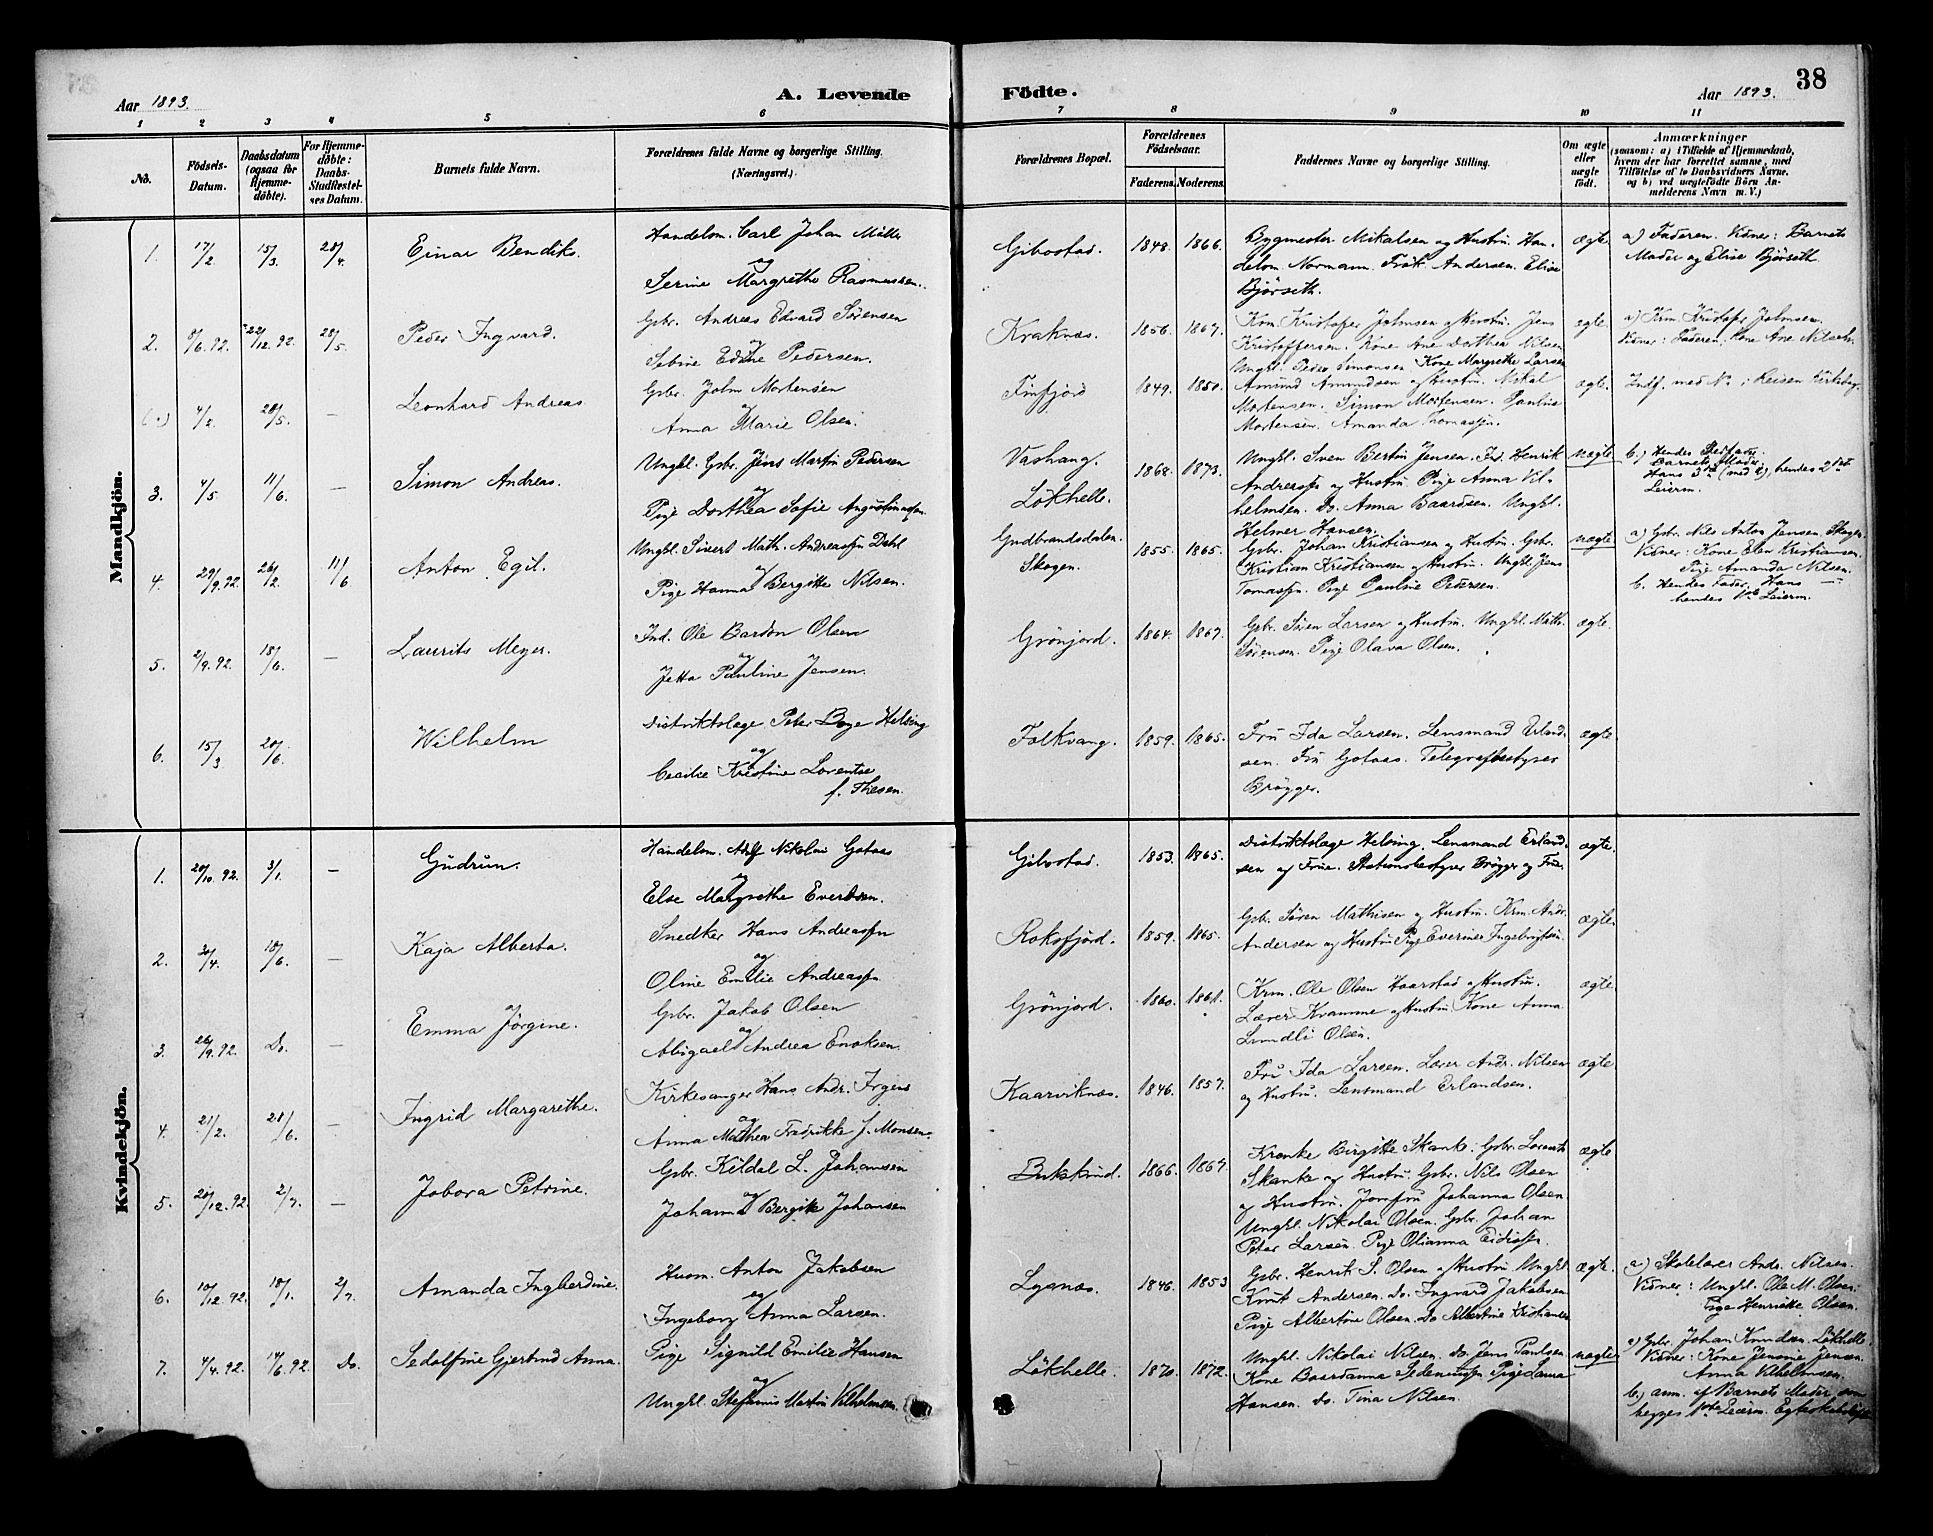 38
Aar 1893. A. Levende Födte. Aar 1893.
1 2 3 4 5 6 7 8 9 10 11
No. Födsels-Datum. Daabsdatum (ogsaa for Hjemmedöbte). For Hjemmedöbte: Daabs-Stadfæstelses Datum. Barnets fulde Navn. Forældrenes fulde Navne og borgerlige Stilling. (Næringsvei.) Forældrenes Bopæl. Forældrenes Födselsaar. Faderens. Moderens. Faddernes Navne og borgerlige Stilling. Om ægte eller uægte födt. Anmærkninger (saasom: a) i Tilfælde af Hjemmedaab, hvem der har forrettet samme, med Tilföielse af to Daabsvidners Navne, og b) ved uægtefödte Börn Anmelderens Navn m. V.)
Mandkjön.
1. 17/2 15/3. 28/4. Einar Bendiks. Handelsm. Carl Johan Möller og Serine Margrethe Rasmussen. Gibostad. 1848. 1866. Bygmester Mikalsen og Hustru. Handelsm. Normann. Frök. Andersen. Elise Bjørseth. ægte a) Faderen. Vidner: Barnets Moder og Elise Bjørseth.
2. 8/6.92. 22/12.92 28/5. Peder Ingvard. Gbr. Andreas Edvard Sørensen og Sebine Edine Pedersen. Kraknæs. 1856. 1867. Krm. Kristofer Johnsen og Hustru. Jens Kristoffersen. Kone Ane Dorthea Nilsen Ungk. Peder Simonsen Kone Margrethe Larsen ægte. a) Krm. Kristofer Johnsen. Vidner: Faderen, Kone Ane Nilsen.
28/5. — Leonhard Andreas Gbr. John Mortensen og Anna Marie Olsen. Finfjord 1849. 1850. Amund Amundsen og Hustru. Nikal Mortensen. Simon Mortensen. Pauline Mortensen. Amanda Thomassen. ægte. Indf. med No i Reisen Kirkebog.
3. 4/5 11/6. — Simon Andreas. Ungkl. Gbr. Jens Martin Pedersen og Pige Dorthea Sofie Augustinussen. Vashaug. Lökhelle. 1868. 1873. Ungkl. Sven Berton Jensen. Ind. Henrik Andreassen og Hustru Pige Anna Vilhelmsen. Do. Anna Baardsen. Ungkl. Helmer Hansen. uægte b.) Hendes Stedfader. Barnets Moder. Hans 3die (med 2), hendes 2det Leierm.
4. 29/9.92. 26/2. 11/6 Anton Egil. Ungkl. Sivert Math. Andreassen Dahl og Pige Hanna Bergitte Nilsen. Gudbrandsdalen. Skogen. 1855. 1865. Gbr. Johan Kristiansen og Hustru. Gbr. Kristian Kristiansen og Hustru. Ungkl. Jens Tomassen. Pige Pauline Pedersen. uægte. a) Gbr. Nils Anton Jensen, Skogen. Vidner: Kone Elen Kristiansen. Pige Amanda Nilsen. b. Hendes Fader. Hans — hendes 1ste Leierm.
5. 2/9.92. 18/6. — Laurits Meyer. Ind. Ole Bardon Olsen og Jetta Pauline Jensen. Grönjord. 1864. 1867. Gbr. Søren Larsen og Hustru. Ungkl. Math. Sørensen. Pige Olava Olsen. ægte.
6. 15/3 20/6. Wilhelm Distriktslæge Peter Boye Helsing og Cecilie Kristine Lorentze f. Thesen. Folkvang. 1859. 1865. Fru Ida Larsen. Lensmand Erlandsen. Fru Gotaas. Telegrafbestyrer Brögger. ægte
Kvindekjön.
1. 20/10.92. 3/1. — Gudrun. Handelsm. Adolf Nikolai Gotaas og Else Margrethe Evertsen. Gibostad. 1853. 1865. Distriktslæge Helsing. Lensmand Erlandsen og Frue. Stationsbestyrer Brögger og Frue. ægte.
2. 30/4. 18/6. — Kaja Alberta. Snedker Hans Andreassen og Oline Emilie Andreassen Roksfjord. 1859. 1865. Gbr. Sören Mathisen og Hustru. Krm. Andr. Andersen og Hustru Pige Everine Ingebrigtsen. ægte.
3. 26/9.92. Do. — Emma Jörgine. Gbr. Jakob Olsen og Abigael Andrea Enoksen. Grönjord. 1860. 1861. Krm. Ole Olsen Haarstad og Hustru. Lærer Kvamme og Hustru Kone Anna Lundli Olsen. ægte
4. 21/2. 28/6. — Ingrid Margarethe. Kirkesanger Hans Andr. Irgens og Anna Mathea Fredrikke f. Monsen. Kaarviknæs. 1846. 1857. Fru Ida Larsen. Lærer Andr. Nilsen og Hustru. Lensmand Erlandsen. ægte
5. 20/12.92. 2/7. — Jobora Petrine. Gbr. Kildal L. Johansen og Johanna Bergitte Johansen Bukskind. 1866. 1867. Birgitte Skanke. Gbr. Lorents Skanke og Hustru. Gbr. Nils Olsen og Hustru. Jomfru Johanna Olsen. Ungkl. Nikolai Olsen. Gbr. Johan Peter Larsen. Pige Olianna Eidissen. ægte
6. 10/12.92. 18/1. 2/7. Amanda Ingberdine. Husm. Anton Jakobsen og Ingeborg Anna Larsen. Lysnæs. 1846. 1853 Gbr. Henrik S. Olsen og Hustru Ungkl. Knut Andersen. Do. Ingvard Jakobsen Pige Albertine Olsen. Do Albertine Kristiansen ægte. a) Skolelærer Andr. Nilsen. Vidner: Ungkl. Ole M. Olsen. Pige Henrikke Olsen.
7. 4/4.92. 14/6.92. Do. Sedolfine Gjertrud Anna. Pige Signild Emilie Hansen og Ungkl. Stefanus Martin Vilhelmsen. Lökhelle. 1870. 1872. Ungkl. Nikolai Nilsen. Do. Jens Paulsen Kone Baardanna Pige Lovisa Hansen. Do. Tina Nilsen. uægte a) Gbr. Johan Knudsen Lökhelle Vidner: Kone Jensine Jensen. Anna Vilhelmsen. b.) anm. af Barnets Moder, som begges 1ste Leierm.